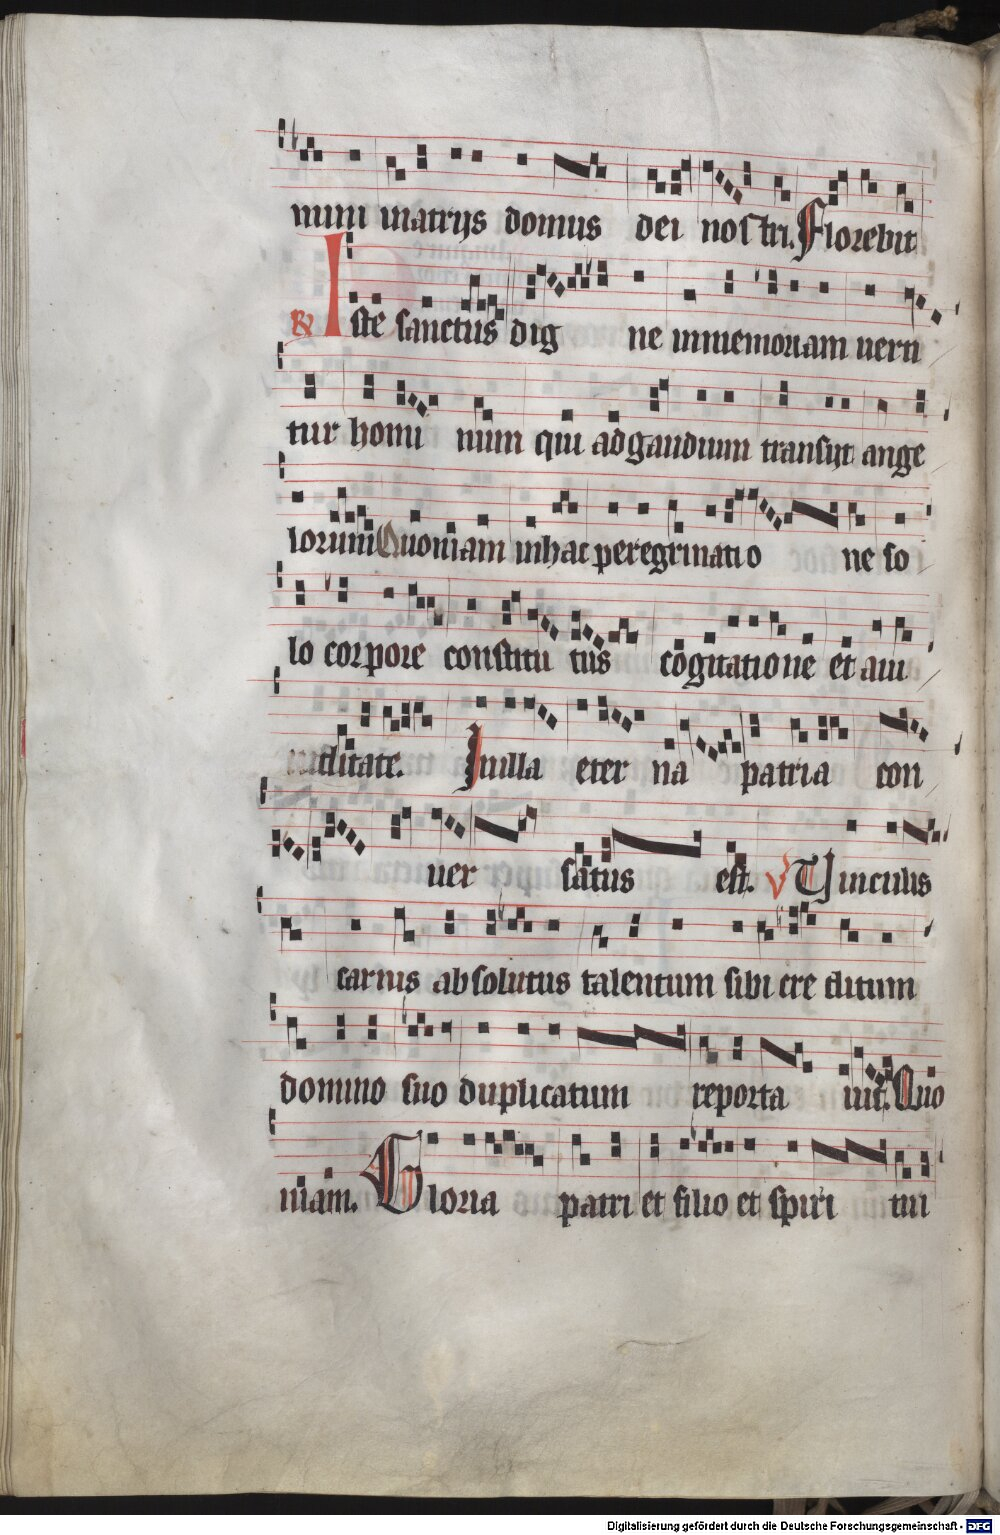 num in atrijs domus dei nostri. Florebit
R Iste sanctus dig ne in memoriam verti
tur homi num qui ad gaudium transijt ange
lorum Quoniam in hac peregrinatio ne so
lo corpore constitu tus cogitatione et aui
ditate. In illa eter na patria con
uer satus est. V Vinculis
carnis absolutus talentum sibi cre ditum
domino suo duplicatum reporta uit. Quo
niam. Gloria patri et filio et spiri tui
Digitalisierung gefördert durch die Deutsche Forschungsgemeinschaft - DFG